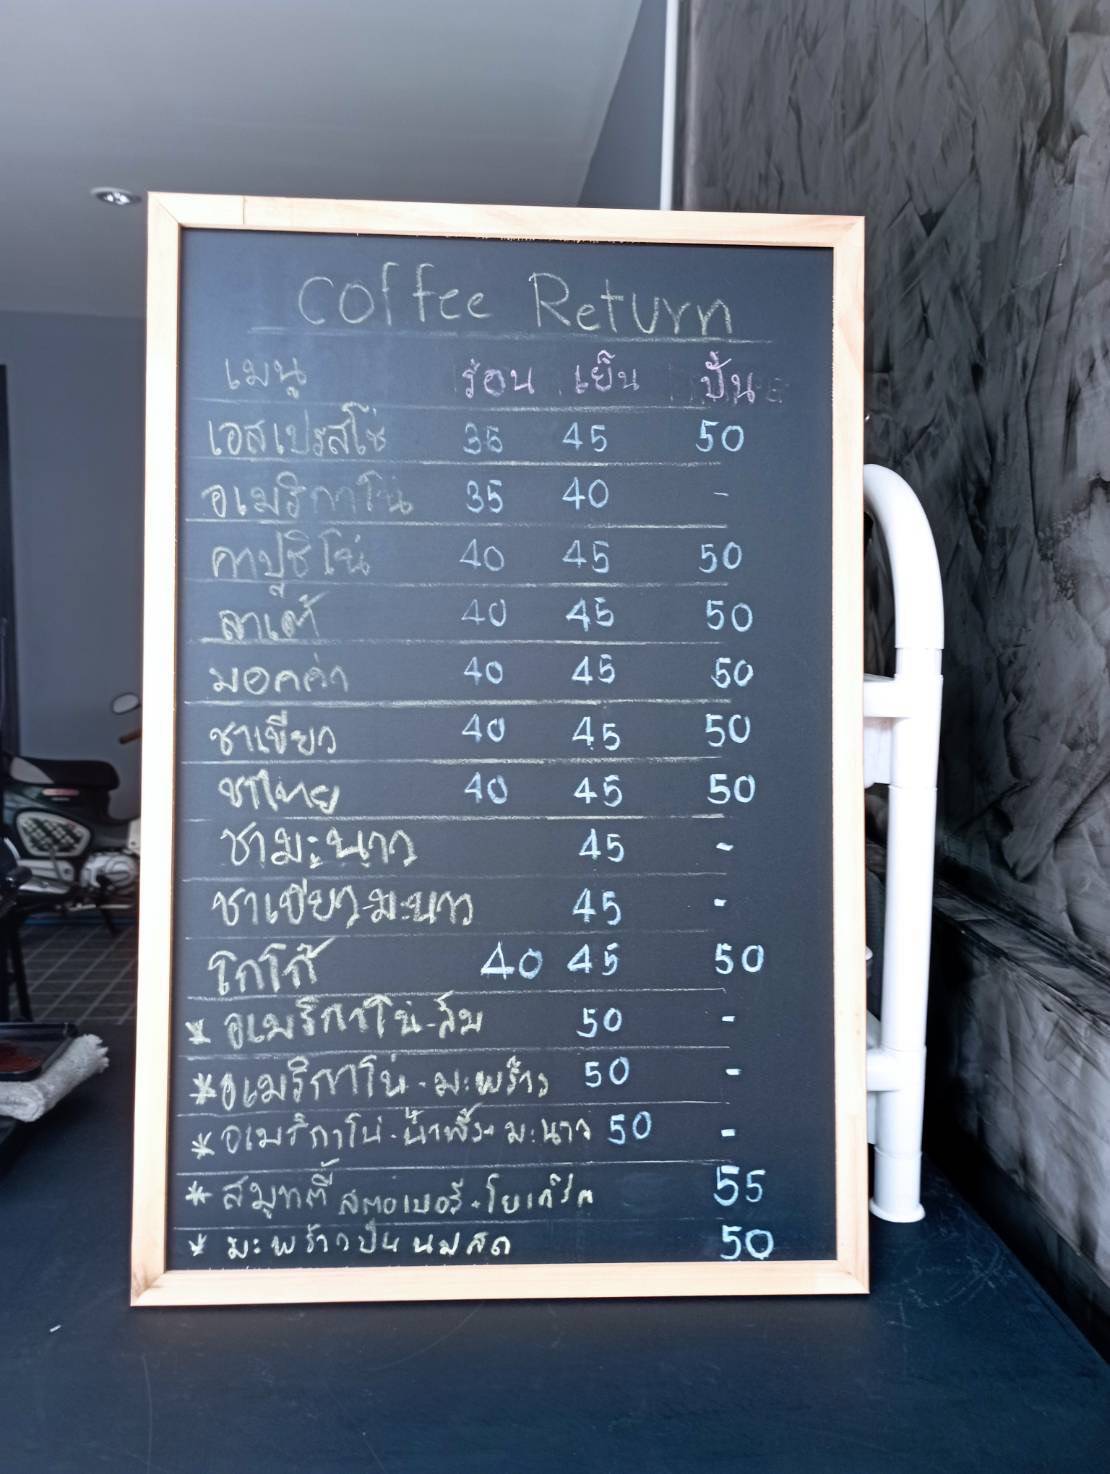 Coffee Return
เมนู ร้อน เย็น ปั่น
เอสเปรสโซ่ 35 45 50
อเมริกาโน่ 35 40 -
คาปูชิโน่ 40 45 50
ลาเต้ 40 45 50
มอคค่า 40 45 50
ชาเขียว 40 45 50
ชาไทย 40 45 50
ชามะนาว 45 -
ชาเขียว-มะนาว 45 -
โกโก้ 40 45 50
* อเมริกาโน่-ส้ม 50 -
* อเมริกาโน่-มะพร้าว 50 -
* อเมริกาโน่-น้ำผึ้ง-มะนาว 50 -
* สมูทตี้ สตอเบอรี่-โยเกิร์ต 55
* มะพร้าวปั่นนมสด 50